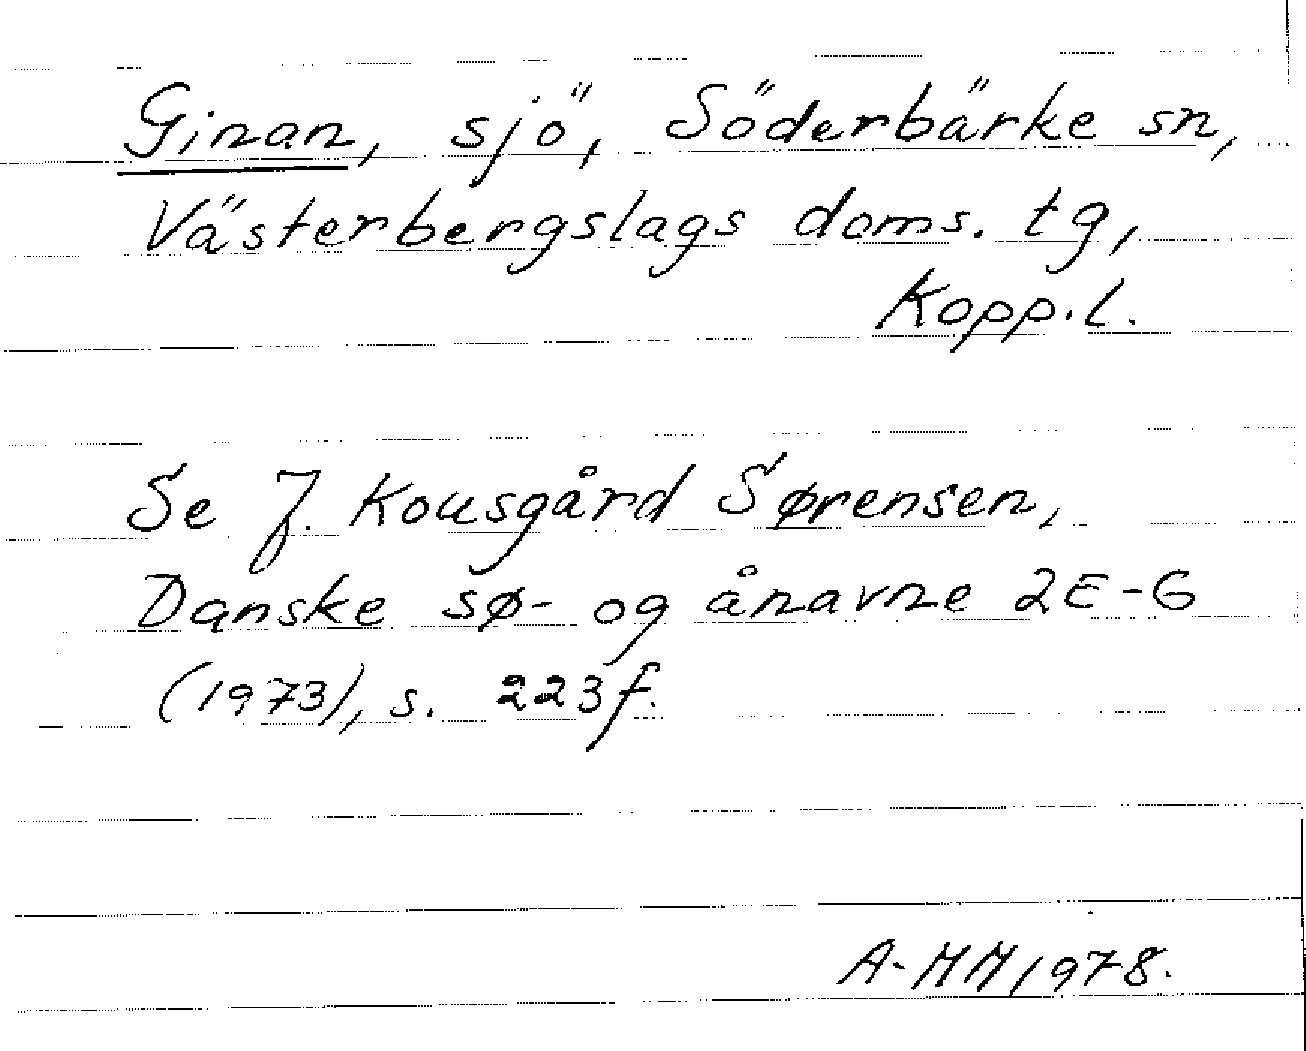 Ginan, sjö, Söderbärke sn,
Västerbergslags doms. tg,
Kopp. l.
Se J. Kousgård Sørensen,
Danske sø- og ånavne 2E-G
(1973), s. 223f.
A-MM 1978.